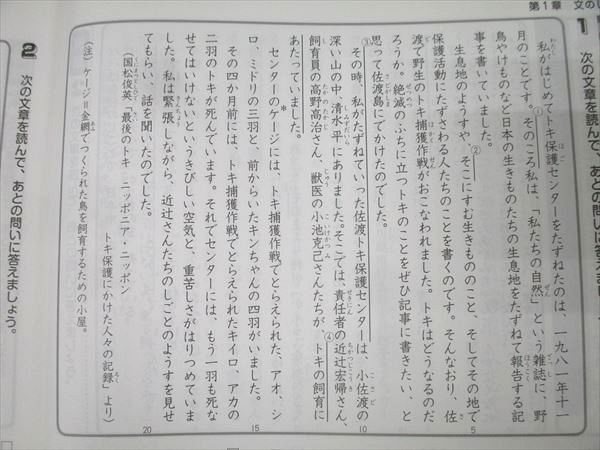 第1章 文の
1 次の文章を読んで、あとの問いに答えましょう。
私がはじめてトキ保護センターをたずねたのは、一九八一年十一
月のことです。①そのころ私は、「私たちの自然」という雑誌に、野
鳥やけものなど日本の生きものたちの生息地をたずねて報告する記
事を書いていました。
生息地のようすや、②そこにすむ生きもののこと、そしてその地で
保護活動にたずさわる人たちのことを書くのです。そんなおり、佐
渡で野生のトキ捕獲作戦がおこなわれました。トキはどうなるのだ
ろうか。絶滅のふちに立つトキのことをぜひ記事に書きたい、と
思って佐渡島にでかけたのでした。
③その時、私がたずねていった佐渡トキ保護センターは、小佐渡の
深い山の中、清水平にありました。そこでは、責任者の近辻宏帰さん、
飼育員の高野高治さん、獣医の小池克己さんたちが、④トキの飼育に
あたっていました。
センターのケージ*には、トキ捕獲作戦でとらえられた、アオ、シ
ロ、ミドリの三羽と、前からいたキンちゃんの四羽がいました。
その四か月前には、トキ捕獲作戦でとらえられたキイロ、アカの
二羽のトキが死んでいます。それでセンターには、もう一羽も死な
せてはいけないというきびしい空気と、重苦しさがはりつめていま
した。私は緊張しながら、近辻さんたちのしごとのようすを見せ
てもらい、話を聞いたのでした。
(国松俊英「最後のトキ ニッポニア・ニッポン
トキ保護にかけた人々の記録」より)
(注) ケージ=金網でつくられた鳥を飼育するための小屋。
5
10
15
20
2 次の文章を読んで、あとの問いに答えましょう。